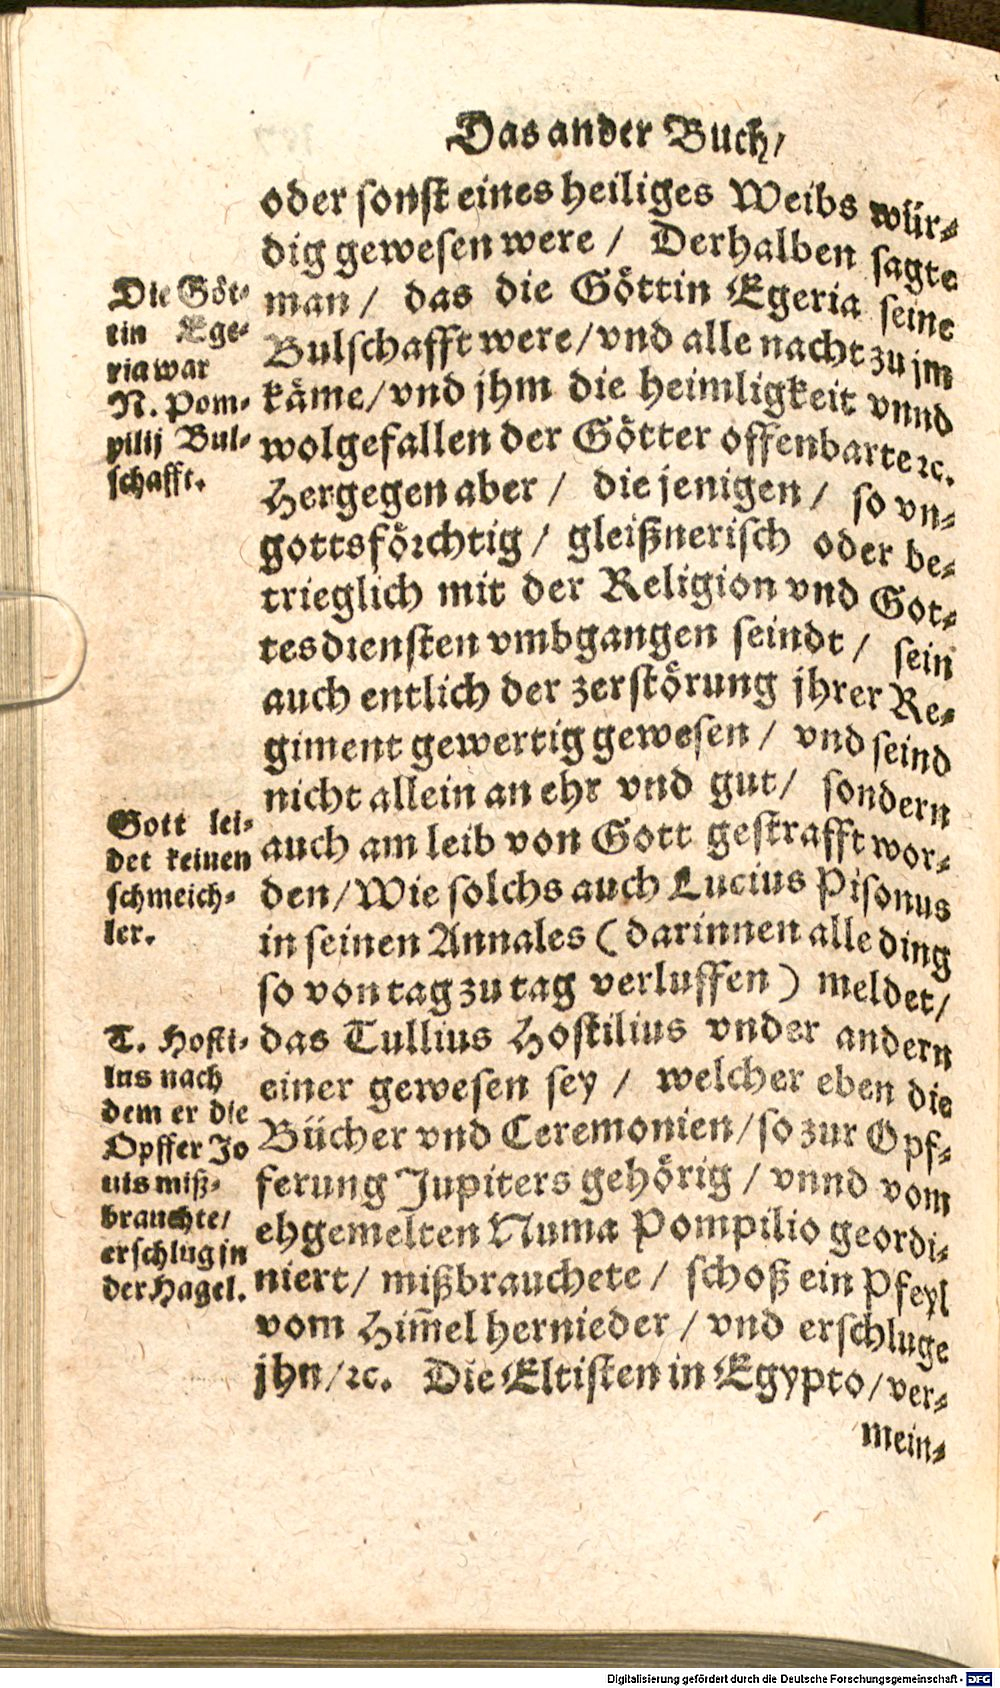 Das ander Buch/
oder sonst eines heiliges Weibs wür-
dig gewesen were / Derhalben sagte
man / das die Göttin Egeria seine
Bulschafft were/vnd alle nacht zu jm
käme/vnd jhm die heimligkeit vnnd
wolgefallen der Götter offenbarte ꝛc.
Hergegen aber / die jenigen / so vn-
gottsförchtig / gleißnerisch oder be-
trieglich mit der Religion vnd Got-
tesdiensten vmbgangen seindt / sein
auch entlich der zerstörung jhrer Re-
giment gewertig gewesen / vnd seind
nicht allein an ehr vnd gut/ sondern
auch am leib von Gott gestrafft wor-
den/Wie solchs auch Lucius Pisonus
in seinen Annales (darinnen alle ding
so von tag zu tag verluffen) meldet/
das Tullius Hostilius vnder andern
einer gewesen sey / welcher eben die
Bücher vnd Ceremonien/so zur Opf-
ferung Jupiters gehörig / vnnd vom
ehgemelten Numa Pompilio geordi-
niert/ mißbrauchete / schoß ein Pfeyl
vom Him̄el hernieder / vnd erschluge
jhn/ꝛc. Die Eltisten in Egypto/ver-
mein-
Die Göt-
tin Ege-
ria war
N. Pom-
pilij Bul-
schafft.
Gott lei-
det keinen
schmeich-
ler.
T. Hosti-
lus nach
dem er die
Opffer Jo
uis miß-
brauchte/
erschlug jn
der Hagel.
Digitalisierung gefördert durch die Deutsche Forschungsgemeinschaft - DFG